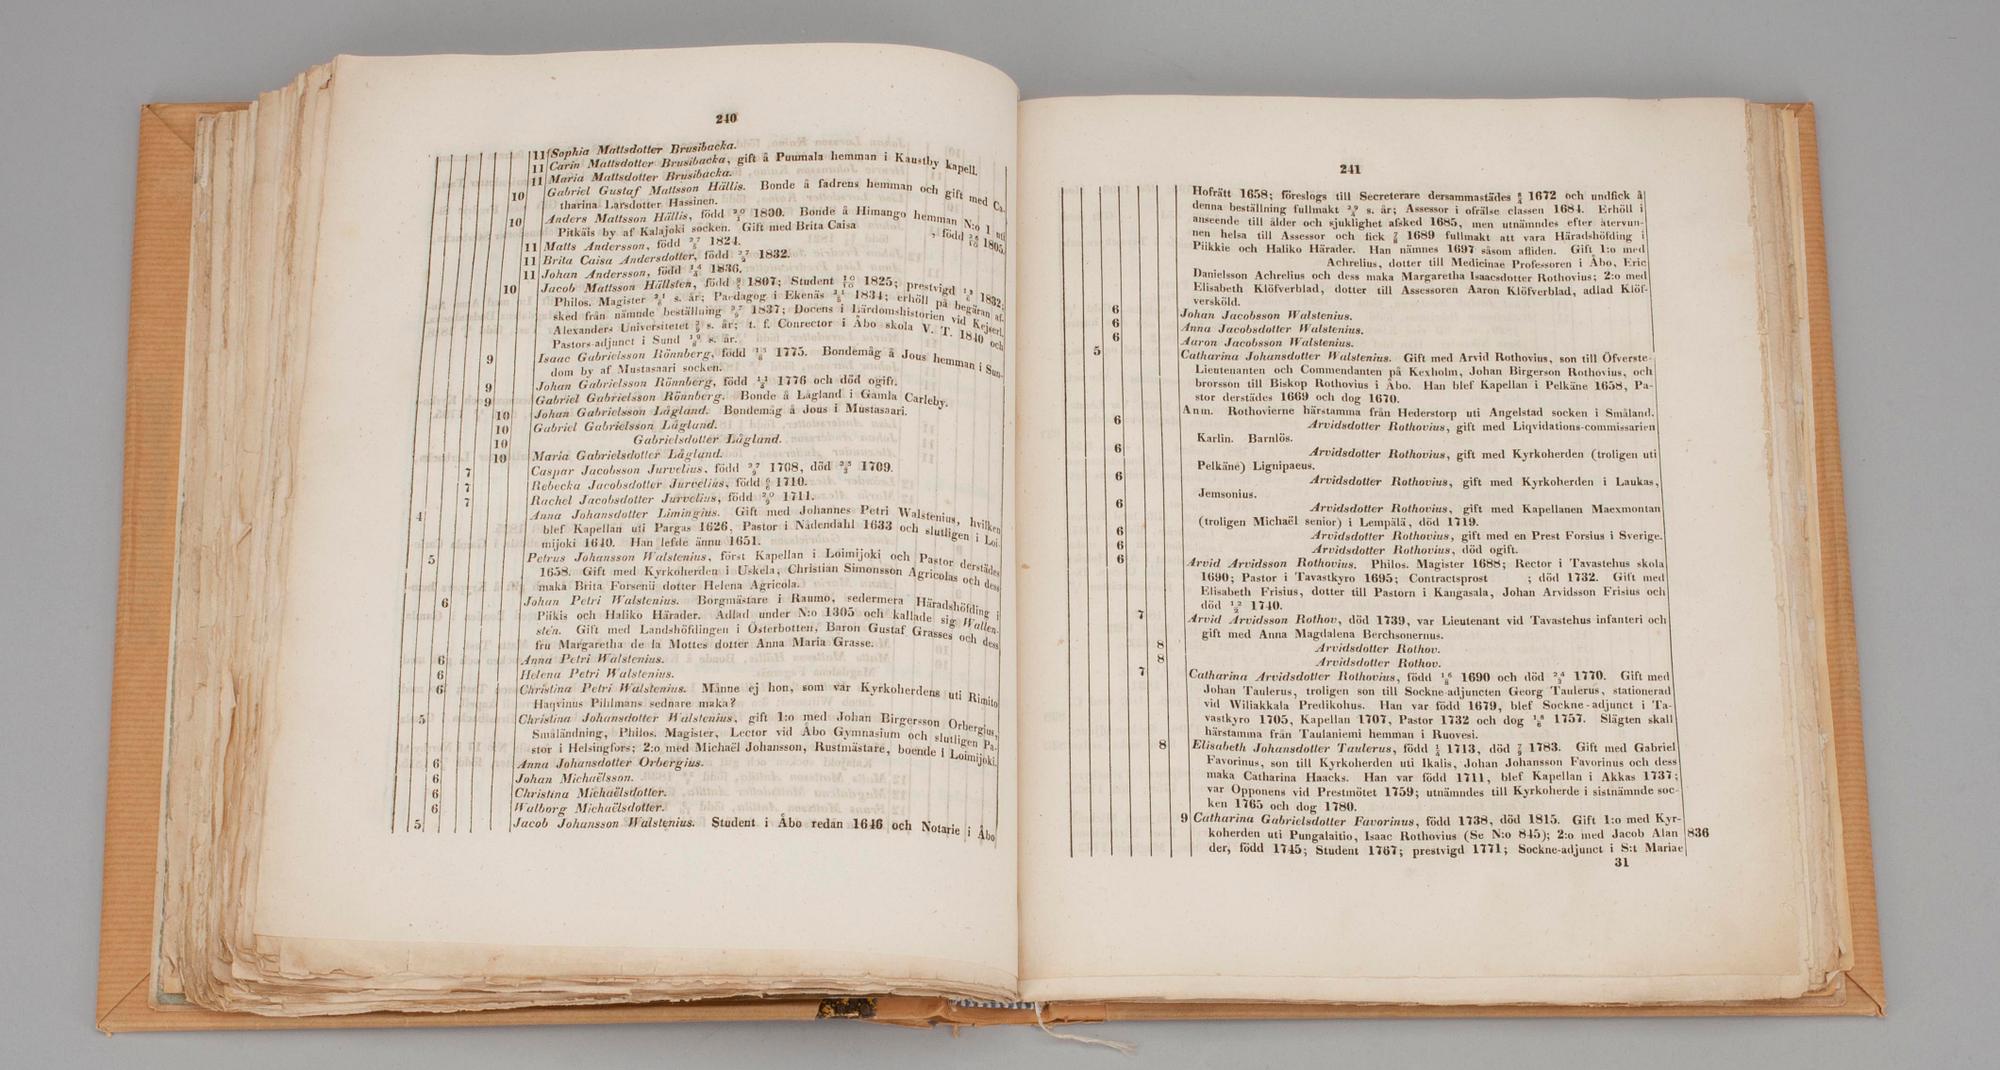 240
11 Sophia Mattsdotter Brusibacka.
11 Carin Mattsdotter Brusibacka, gift å Puumala hemman i Kaustby kapell.
11 Maria Mattsdotter Brusibacka.
10 Gabriel Gustaf Mattsson Hällis. Bonde å fadrens hemman och gift med Ca-
tharina Larsdotter Hassinen.
10 Anders Mattsson Hällis, född 20/1 1800. Bonde å Himango hemman N:o 1 uti
Pitkäis by af Kalajoki socken. Gift med Brita Caisa , född 26/10 1805.
11 Matts Andersson, född 27/5 1824.
11 Brita Caisa Andersdotter, född 27/2 1832.
11 Johan Andersson, född 14/4 1836.
10 Jacob Mattsson Hällstén, född 1807; Student 10/10 1825; prestvigd 1832;
Philos. Magister 21/6 s. år; Paedagog i Ekenäs 21/5 1834; erhöll på begäran af-
sked från nämnde beställning 27/9 1837; Docens i Lärdomshistorien vid Kejserl.
Alexanders Universitetet s. år; t. f. Conrector i Åbo skola V. T. 1840 och
Pastors-adjunct i Sund 19/8 s. år.
9 Isaac Gabrielsson Rönnberg, född 1775. Bondemåg å Jous hemman i Sun-
dom by af Mustasaari socken.
9 Johan Gabrielsson Rönnberg, född 1776 och död ogift.
9 Gabriel Gabrielsson Rönnberg. Bonde å Lågland i Gamla Carleby.
10 Johan Gabrielsson Lågland. Bondemåg å Jous i Mustasaari.
10 Gabriel Gabrielsson Lågland.
10 Gabrielsdotter Lågland.
10 Maria Gabrielsdotter Lågland.
7 Caspar Jacobsson Jurvelius, född 27/9 1708, död 25/3 1709.
7 Rebecka Jacobsdotter Jurvelius, född 1710.
7 Rachel Jacobsdotter Jurvelius, född 20/9 1711.
4 Anna Johansdotter Limingius. Gift med Johannes Petri Walstenius, hvilken
blef Kapellan uti Pargas 1626, Pastor i Nådendahl 1633 och slutligen i Loi-
mijoki 1640. Han lefde ännu 1651.
5 Petrus Johansson Walstenius, först Kapellan i Loimijoki och Pastor derstädes
1658. Gift med Kyrkoherden i Uskela, Christian Simonsson Agricolas och dess
maka Brita Forsenii dotter Helena Agricola.
6 Johan Petri Walstenius. Borgmästare i Raumo, sedermera Häradshöfding i
Piikis och Haliko Härader. Adlad under N:o 1305 och kallade sig Wallen-
sten. Gift med Landshöfdingen i Österbotten, Baron Gustaf Grasses och dess
fru Margaretha de la Mottes dotter Anna Maria Grasse.
6 Anna Petri Walstenius.
6 Helena Petri Walstenius.
6 Christina Petri Walstenius. Månne ej hon, som var Kyrkoherdens uti Rimito
Haqvinus Pihlmans sednare maka?
5 Christina Johansdotter Walstenius, gift 1:o med Johan Birgersson Orbergius,
Småländning, Philos. Magister, Lector vid Åbo Gymnasium och slutligen Pa-
stor i Helsingfors; 2:o med Michaël Johansson, Rustmästare, boende i Loimijoki.
6 Anna Johansdotter Orbergius.
6 Johan Michaëlsson.
6 Christina Michaëlsdotter.
6 Walborg Michaëlsdotter.
5 Jacob Johansson Walstenius. Student i Åbo redan 1646 och Notarie i Åbo
241
Hofrätt 1658; föreslogs till Secreterare dersammastädes 1672 och undfick å
denna beställning fullmakt 29/4 s. år; Assessor i ofrälse classen 1684. Erhöll i
anseende till ålder och sjuklighet afsked 1685, men utnämndes efter återvun-
nen helsa till Assessor och fick 7/8 1689 fullmakt att vara Häradshöfding i
Piikkie och Haliko Härader. Han nämnes 1697 såsom afliden. Gift 1:o med
Achrelius, dotter till Medicinae Professoren i Åbo, Eric
Danielsson Achrelius och dess maka Margaretha Isaacsdotter Rothovius; 2:o med
Elisabeth Klöfverblad, dotter till Assessoren Aaron Klöfverblad, adlad Klöf-
versköld.
6 Johan Jacobsson Walstenius.
6 Anna Jacobsdotter Walstenius.
6 Aaron Jacobsson Walstenius.
5 Catharina Johansdotter Walstenius. Gift med Arvid Rothovius, son till Öfverste-
Lieutenanten och Commendanten på Kexholm, Johan Birgerson Rothovius, och
brorsson till Biskop Rothovius i Åbo. Han blef Kapellan i Pelkäne 1658, Pa-
stor derstädes 1669 och dog 1670.
Anm. Rothovierne härstamma från Hederstorp uti Angelstad socken i Småland.
6 Arvidsdotter Rothovius, gift med Liqvidations-commissarien
Karlin. Barnlös.
6 Arvidsdotter Rothovius, gift med Kyrkoherden (troligen uti
Pelkäne) Lignipaeus.
6 Arvidsdotter Rothovius, gift med Kyrkoherden i Laukas,
Jemsonius.
6 Arvidsdotter Rothovius, gift med Kapellanen Maexmontan
(troligen Michaël senior) i Lempälä, död 1719.
6 Arvidsdotter Rothovius, gift med en Prest Forsius i Sverige.
6 Arvidsdotter Rothovius, död ogift.
6 Arvid Arvidsson Rothovius. Philos. Magister 1688; Rector i Tavastehus skola
1690; Pastor i Tavastkyro 1695; Contractsprost ; död 1732. Gift med
Elisabeth Frisius, dotter till Pastorn i Kangasala, Johan Arvidsson Frisius och
död 12/2 1740.
7 Arvid Arvidsson Rothov, död 1739, var Lieutenant vid Tavastehus infanteri och
gift med Anna Magdalena Berchsonernus.
8 Arvidsdotter Rothov.
8 Arvidsdotter Rothov.
7 Catharina Arvidsdotter Rothovius, född 16/8 1690 och död 24/3 1770. Gift med
Johan Taulerus, troligen son till Sockne-adjuncten Georg Taulerus, stationerad
vid Wiliakkala Predikohus. Han var född 1679, blef Sockne-adjunct i Ta-
vastkyro 1705, Kapellan 1707, Pastor 1732 och dog 18/6 1757. Slägten skall
härstamma från Taulaniemi hemman i Ruovesi.
8 Elisabeth Johansdotter Taulerus, född 1/4 1713, död 7/9 1783. Gift med Gabriel
Favorinus, son till Kyrkoherden uti Ikalis, Johan Johansson Favorinus och dess
maka Catharina Haacks. Han var född 1711, blef Kapellan i Akkas 1737;
var Opponens vid Prestmötet 1759; utnämndes till Kyrkoherde i sistnämnde soc-
ken 1765 och dog 1780.
9 Catharina Gabrielsdotter Favorinus, född 1738, död 1815. Gift 1:o med Kyr-
koherden uti Pungalaitio, Isaac Rothovius (Se N:o 845); 2:o med Jacob Alan 836
der, född 1745; Student 1767; prestvigd 1771; Sockne-adjunct i S:t Mariae
31